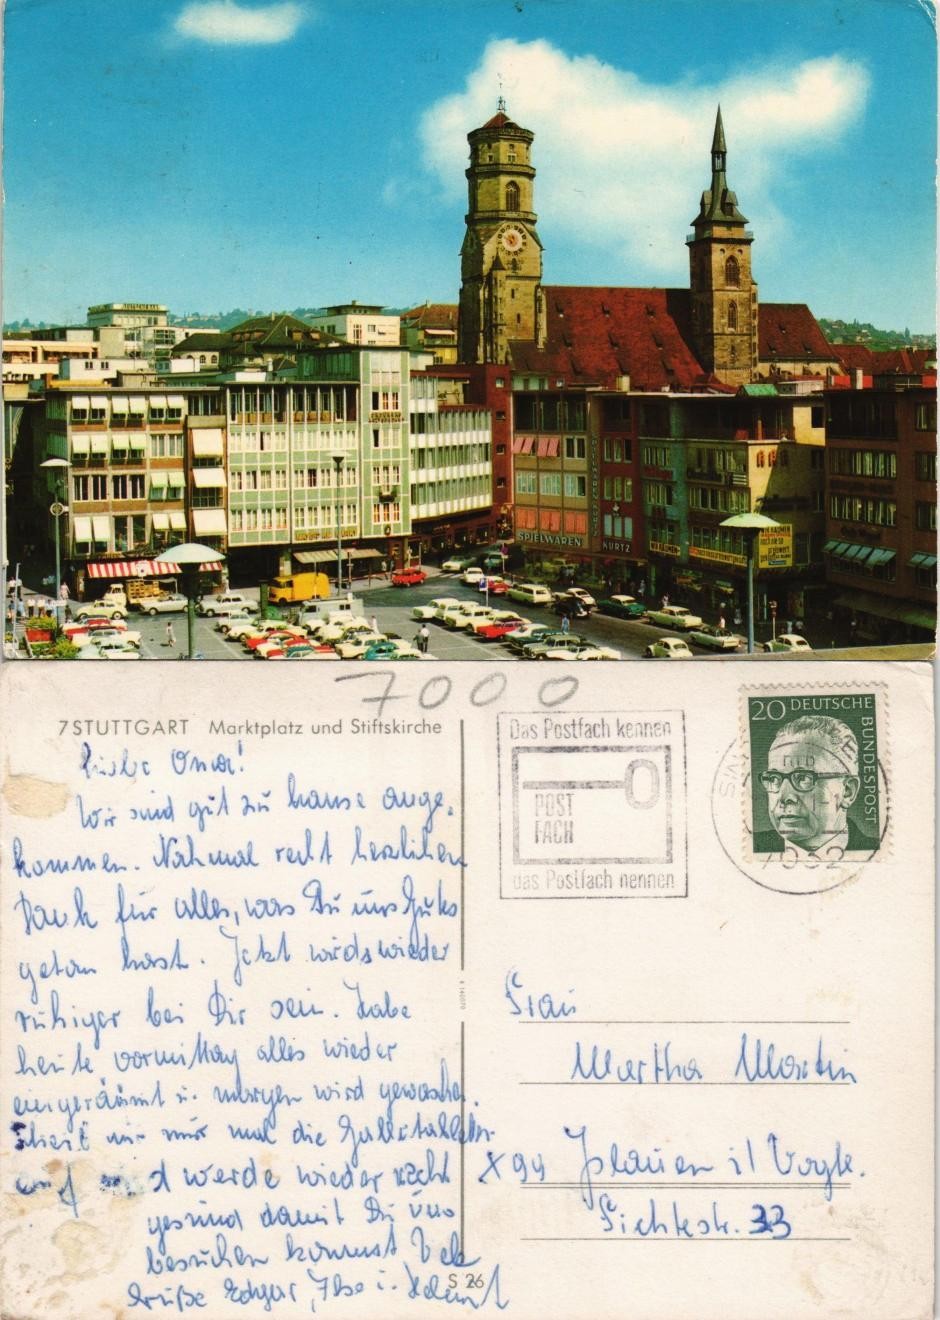 SPIELWAREN
KURTZ
SPIELWAREN KURTZ
7000
7 STUTTGART Marktplatz und Stiftskirche
Liebe Oma!
Wir sind gut zu hause ange-
kommen. Nochmal recht herzlichen
Dank für alles, was Du uns Gutes
getan hast. Jetzt wirds wieder
ruhiger bei Dir sein. Habe
heute vormittag alles wieder
eingeräumt u. morgen wird gewaschen.
mir mal die
und werde wieder recht
gesund damit Du uns
besuchen kommst Viele
Grüße Edgar, Ilse u. Helmut
S 26
Das Postfach kennen
POST
FACH
das Postfach nennen
20 DEUTSCHE
BUNDESPOST
7032
Frau
Martha Martin
X 99 Plauen i/ Vogtl.
Fichtestr. 33